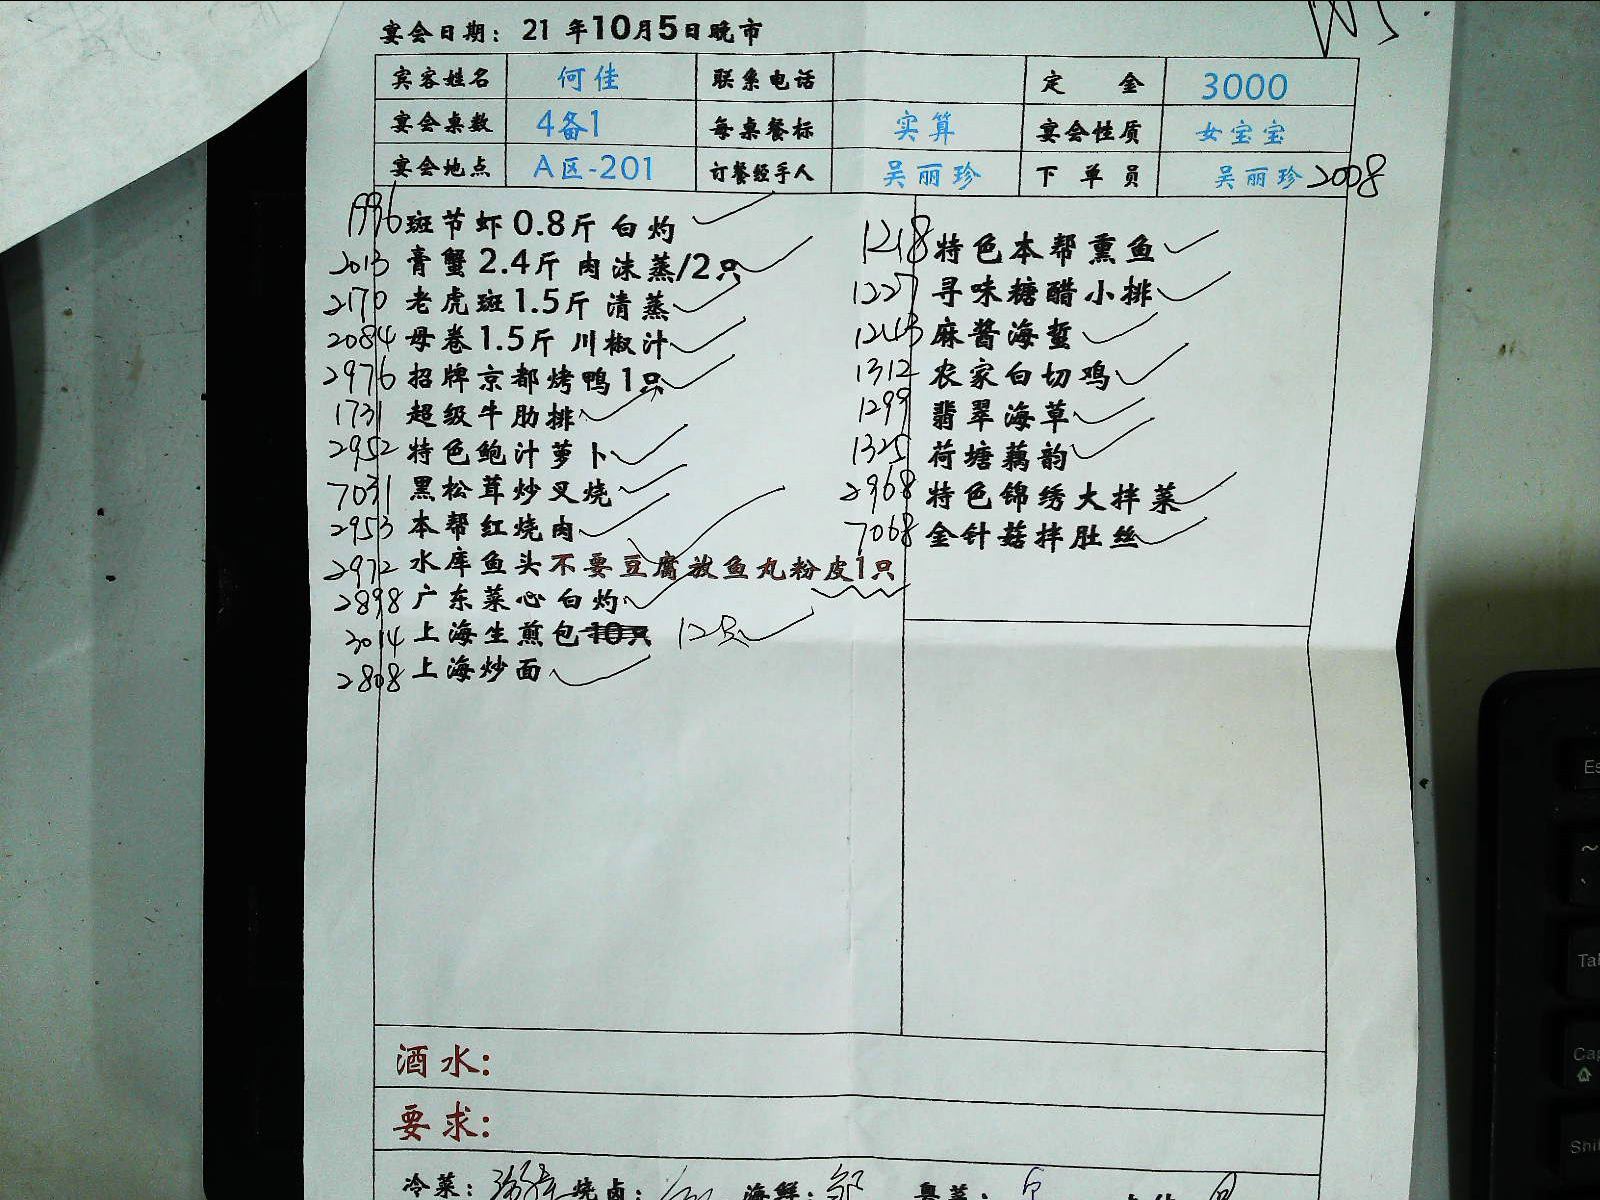 宴会日期：21 年10月5日晚市
宾客姓名 何佳 联系电话 定 金 3000
宴会桌数 4备1 每桌餐标 实算 宴会性质 女宝宝
宴会地点 A区-201 订餐经手人 吴丽珍 下 单 员 吴丽珍 2008
1996 斑节虾0.8斤 白灼
2013 膏蟹2.4斤 肉沫蒸/2只
2170 老虎斑1.5斤 清蒸
2084 母卷1.5斤 川椒汁
2976 招牌京都烤鸭1只
1731 超级牛肋排
2952 特色鲍汁萝卜
7031 黑松茸炒叉烧
2953 本帮红烧肉
2972 水库鱼头不要豆腐放鱼丸粉皮1只
2898 广东菜心白灼
2014 上海生煎包10只 12只
2808 上海炒面
1218 特色本帮熏鱼
1227 寻味糖醋小排
1243 麻酱海蜇
1312 农家白切鸡
1299 翡翠海草
1325 荷塘藕韵
2968 特色锦绣大拌菜
7068 金针菇拌肚丝
酒水：
要求：
冷菜： 烧卤： 海鲜： 粤菜：
Es
Tab
Cap
Shi